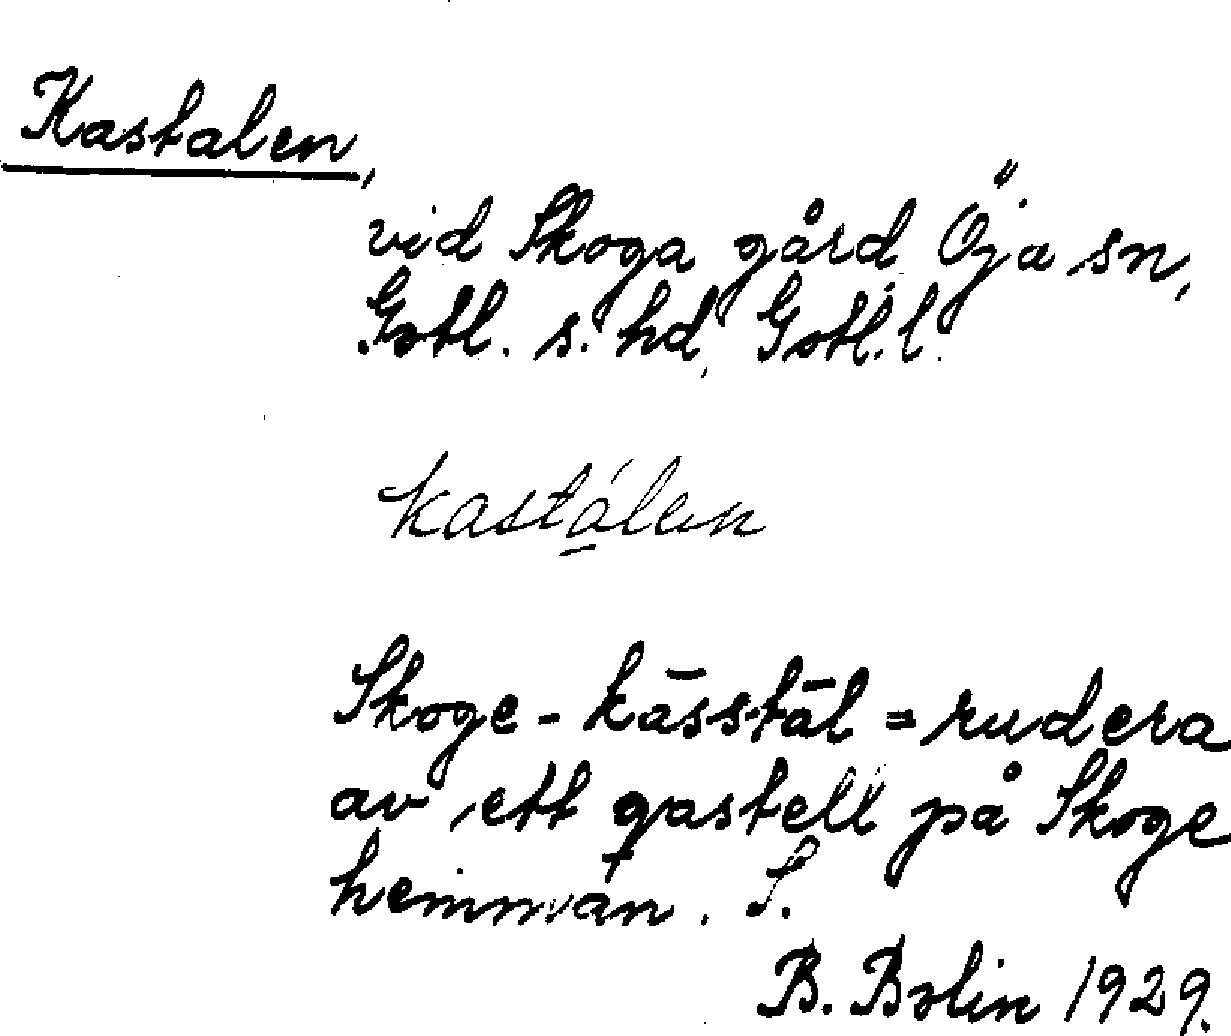 Kastalen,
vid Skoga gård, Öja sn,
Gotl. s. hd, Gotl. l.
kastálen
Skoge - kāsstāl = rudera
av ett qastell på Skoge
hemmán. S.
B. Bolin 1929.